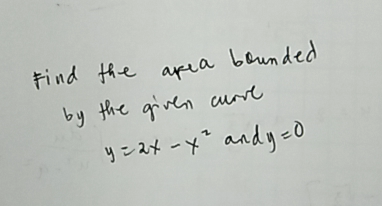 Find the area bounded
by the given curve
y = 2x - x² and y = 0